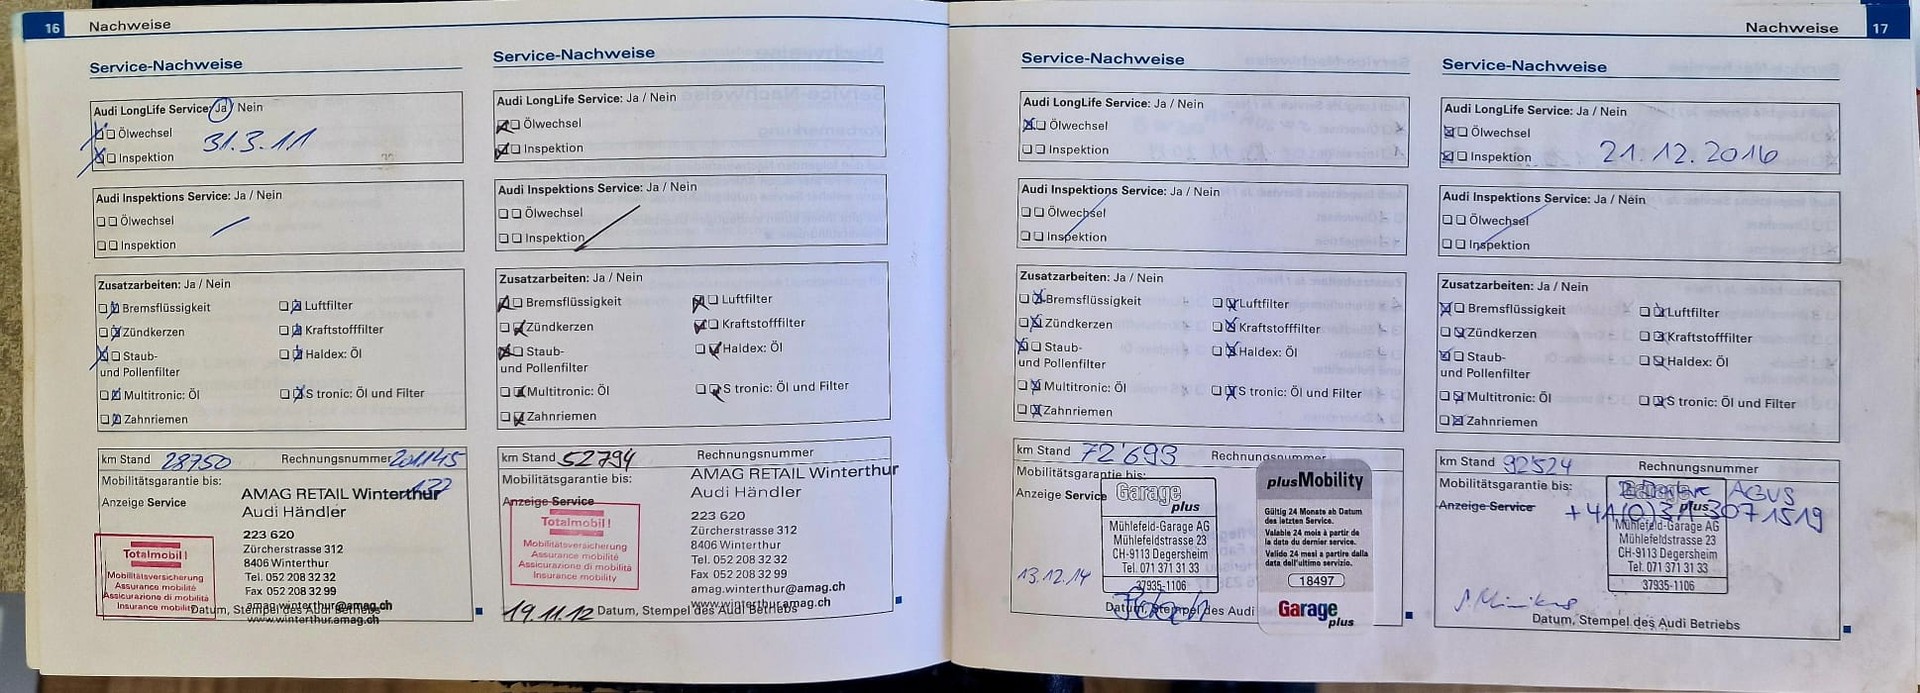 16 Nachweise
Service-Nachweise
Audi LongLife Service: Ja / Nein
Ölwechsel
Inspektion
31.3.11
Audi Inspektions Service: Ja / Nein
Ölwechsel
Inspektion
Zusatzarbeiten: Ja / Nein
Bremsflüssigkeit
Luftfilter
Zündkerzen
Kraftstofffilter
Staub-
und Pollenfilter
Haldex: Öl
Multitronic: Öl
S tronic: Öl und Filter
Zahnriemen
km Stand 28750 Rechnungsnummer 201145
Mobilitätsgarantie bis:
Anzeige Service
AMAG RETAIL Winterthur
Audi Händler
223 620
Zürcherstrasse 312
8406 Winterthur
Tel. 052 208 32 32
Fax 052 208 32 99
amag.winterthur@amag.ch
www.winterthur.amag.ch
Totalmobil!
Mobilitätsversicherung
Assurance mobilité
Assicurazione di mobilità
Insurance mobility
Datum, Stempel des Audi Betriebs
Service-Nachweise
Audi LongLife Service: Ja / Nein
Ölwechsel
Inspektion
Audi Inspektions Service: Ja / Nein
Ölwechsel
Inspektion
Zusatzarbeiten: Ja / Nein
Bremsflüssigkeit
Luftfilter
Zündkerzen
Kraftstofffilter
Staub-
und Pollenfilter
Haldex: Öl
Multitronic: Öl
S tronic: Öl und Filter
Zahnriemen
km Stand 52794 Rechnungsnummer
Mobilitätsgarantie bis:
Anzeige Service
AMAG RETAIL Winterthur
Audi Händler
223 620
Zürcherstrasse 312
8406 Winterthur
Tel. 052 208 32 32
Fax 052 208 32 99
amag.winterthur@amag.ch
www.winterthur.amag.ch
Totalmobil!
Mobilitätsversicherung
Assurance mobilité
Assicurazione di mobilità
Insurance mobility
19.11.12 Datum, Stempel des Audi Betriebs
Nachweise 17
Service-Nachweise
Audi LongLife Service: Ja / Nein
Ölwechsel
Inspektion
Audi Inspektions Service: Ja / Nein
Ölwechsel
Inspektion
Zusatzarbeiten: Ja / Nein
Bremsflüssigkeit
Luftfilter
Zündkerzen
Kraftstofffilter
Staub-
und Pollenfilter
Haldex: Öl
Multitronic: Öl
S tronic: Öl und Filter
Zahnriemen
km Stand 72'693 Rechnungsnummer
Mobilitätsgarantie bis:
Anzeige Service
Garage
plus
Mühlefeld-Garage AG
Mühlefeldstrasse 23
CH-9113 Degersheim
Tel. 071 371 31 33
37935-1106
13.12.14
Datum, Stempel des Audi
plusMobility
Gültig 24 Monate ab Datum
des letzten Service.
Valable 24 mois à partir de
la date du dernier service.
Valido 24 mesi a partire dalla
data dell'ultimo servizio.
18497
Garage
plus
Service-Nachweise
Audi LongLife Service: Ja / Nein
Ölwechsel
Inspektion
21.12.2016
Audi Inspektions Service: Ja / Nein
Ölwechsel
Inspektion
Zusatzarbeiten: Ja / Nein
Bremsflüssigkeit
Luftfilter
Zündkerzen
Kraftstofffilter
Staub-
und Pollenfilter
Haldex: Öl
Multitronic: Öl
S tronic: Öl und Filter
Zahnriemen
km Stand 92524 Rechnungsnummer
Mobilitätsgarantie bis:
Anzeige Service
Garage
plus
Mühlefeld-Garage AG
Mühlefeldstrasse 23
CH-9113 Degersheim
Tel. 071 371 31 33
37935-1106
Datum, Stempel des Audi Betriebs